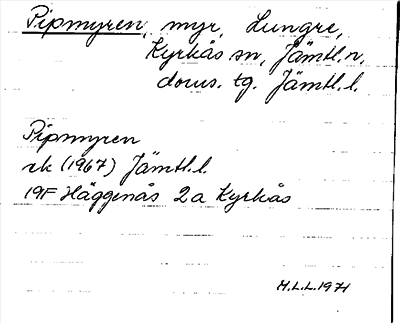 Pipmyren, myr, Lungre,
Kyrkås sn, Jämtl.n.
doms. tg. Jämtl.l.
Pipmyren
rk (1967) Jämtl.l.
19F Häggenås 2a Kyrkås
M.L.L. 1971